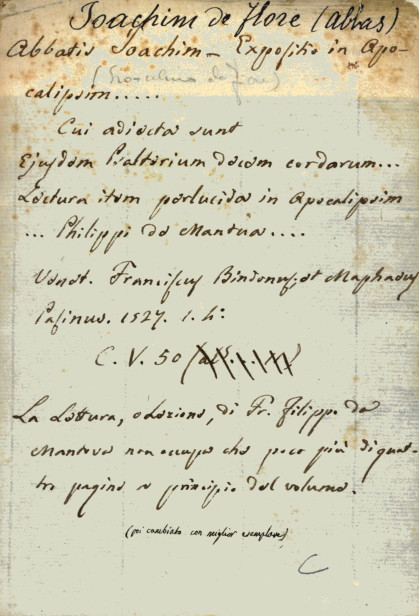 Joachim de Flore (abbas)
Abbatis Joachim — Expositio in Apo-
calipsim.....
Cui adiecta sunt
Ejusdem Psalterium decem cordarum...
Lectura item perlucida in Apocalipsim
... Philippi de Mantua....
Venet. Franciscus Bindonus, et Maphaeus
Pasinus. 1527. 1. h:
C. V. 50
La Lettura, o Lezione, di Fr. Filippo da
Mantova non occupa che poco più di quat-
tro pagine a principio del volume.
(poi cambiato con miglior esemplare)
C